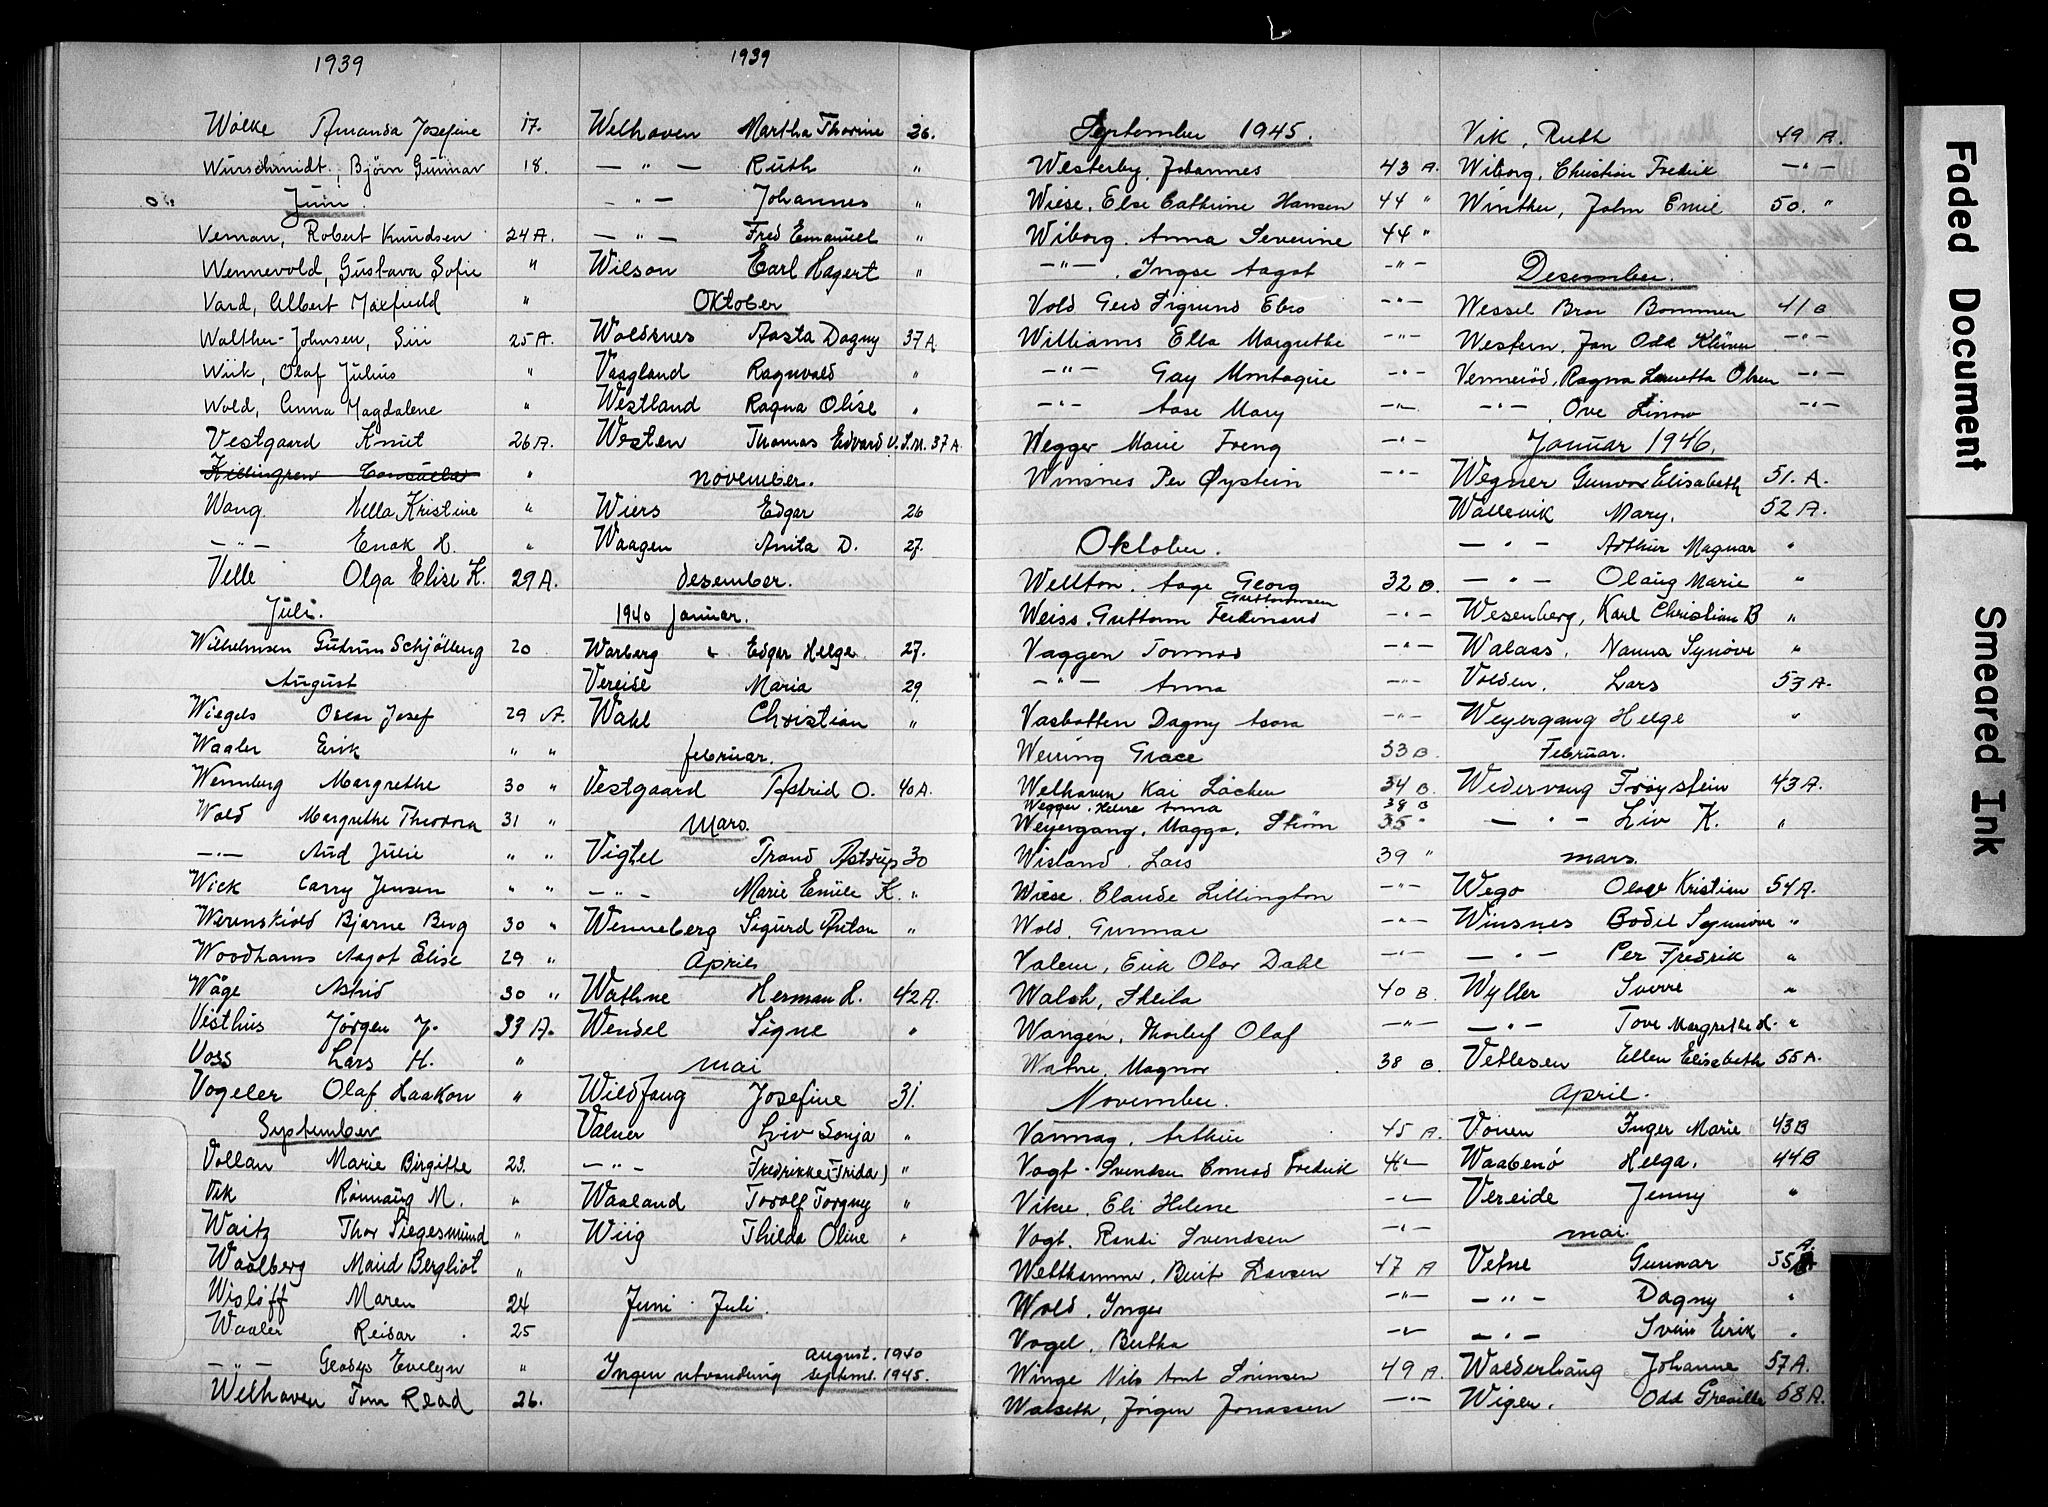 1939
Wölke Amanda Josefine 17.
Wurschmidt, Bjørn Gunnar 18.
Juni.
Veman, Robert Knudsen 24 A.
Wennevold, Gustava Sofie "
Vard, Albert Maxfield "
Walther-Johnsen, Siri 25 A.
Wiik, Olaf Julius "
Wold, Anna Magdalene "
Vestgaard Knut 26 A.
Wang Nella Kristine "
— " — Enok H. "
Velle Olga Elise K. 29 A.
Juli.
Wilhelmsen Gudrun Schjölberg 20
August
Wiegels Oscar Josef 29 A.
Waaler Erik " "
Wennberg Margrethe 30 "
Wold Margrethe Theodora 31 "
— " — Aud Julie " "
Wick Carry Jensen " "
Werenskiold Bjarne Berg 30 "
Woodhams Aagot Elise 29 "
Wåge Astrid 30 "
Visthus Jørgen J. 33 A.
Voss Lars H. "
Vogeler Olaf Haakon "
September
Vollan Marie Birgitte 23.
Vik Rönnaug M. "
Waitz Thor Siegesmund "
Waalberg Maud Bergliot "
Wislöff Maren 24
Waaler Reidar 25
— " — Gladys Evelyn "
Welhaven Tom Read 26.
1939
Welhaven Martha Thorine 26.
— " — Ruth "
— " — Johannes "
— " — Fred Emanuel "
Wilson Earl Hagert "
Oktober
Woldsnes Aasta Dagny 37 A.
Vaagland Ragnvald "
Westland Ragna Olise "
Westen Thomas Edvard V.S.M. 37 A.
November.
Wiers Edgar 26
Waagen Anita D. 27.
Desember.
1940 Januar.
Warberg Edgar Helge 27.
Vereide Maria 29.
Wahl Christian "
februar.
Vestgaard Astrid O. 40 A.
Mars.
Vigtel Trand Astrup 30
— " — Marie Emilie K. "
Wenneberg Sigurd Anton "
April
Wathne Herman H. 42 A.
Wendel Signe "
Mai
Wildfang Josefine 31.
Valner Liv Sonja "
— " — Fredrikke (Frida) "
Waaland Torolf Torgny "
Wiig Thilda Oline "
Juni - Juli.
august. 1940
Ingen utvandring septemb. 1945.
September 1945.
Westerby, Johannes 43 A.
Wiese, Else Cathrine Hansen 44 "
Wiborg. Anna Severine 44 "
— " — . Ingse Aagot — " —
Vold Gerd Sigrund Ebro — " —
Williams Ella Margrethe — " —
— " — Gay Montague — " —
— " — Aase Mary — " —
Wegger Marie Freng — " —
Winsnes Per Øystein — " —
Oktober.
Wellton. Aage Georg 32 B.
Guttormsen
Weiss. Guttorm Ferdinand — " —
Vaggen Tormod — " —
— " — Anna — " —
Vasbotten Dagny Asora — " —
Weiring Grace 33 B.
Welhaven Kai Løchen 34 B.
Wegger. Helene Anna 38 B
Weyergang, Magga, Strøm 35 "
Wisland. Lars 39 "
Wiese. Claude Lillington — " —
Wold. Gunnar — " —
Valem, Erik Olav Dahl — " —
Walsh, Sheila 40 B.
Wangen, Thorleif Olaf — " —
Watne, Magnor 38 B.
November.
Vanmag, Arthur 45 A.
Vogt-Svendsen Conrad Fredrik — " —
Vikse, Eli Helene — " —
Vogt. Randi Svendsen — " —
Welthammer, Berit Larsen 47 A
Wold, Inger — " —
Vogel, Bertha — " —
Winge Nils Arnt Sørensen 49 A.
Walseth, Jørgen Jonassen — " —
Vik, Ruth 49 A.
Wiborg, Christian Fredrik — " —
Winther, John Emil 50. "
Desember.
Wessel Bror Bommen 41 B
Western, Jan Odd Klüwer — " —
Vennerød, Ragna Lauretta Olsen — " —
— " — Ove Linow — " —
Januar 1946.
Wegner Gunvor Elisabeth 51. A.
Wallevik Mary. 52 A.
— " — Arthur Magnar "
— " — Olaug Marie "
Wesenberg, Karl Christian B "
Walaas, Nanna Synøve "
Volden, Lars 53 A.
Weyergang Helge "
Februar.
Wedervang Frøystein 43 A.
— " — Liv K. "
mars.
Wego Olav Kristian 54 A.
Winsnes Bodil Synnøve "
— " — Per Fredrik "
Wyller Sverre "
— " — Tove Margrethe H. "
Vetlesen Ellen Elisabeth 55 A.
April.
Vonen Inger Marie 43 B
Waabenø Helga. 44 B
Vereide Jenny "
mai.
Vetne Gunnar 55 A.
— " — Dagny "
— " — Svein Erik "
Walderhaug Johanne 57 A.
Wigen. Odd Greville 58 A.
Faded Document
Smeared Ink